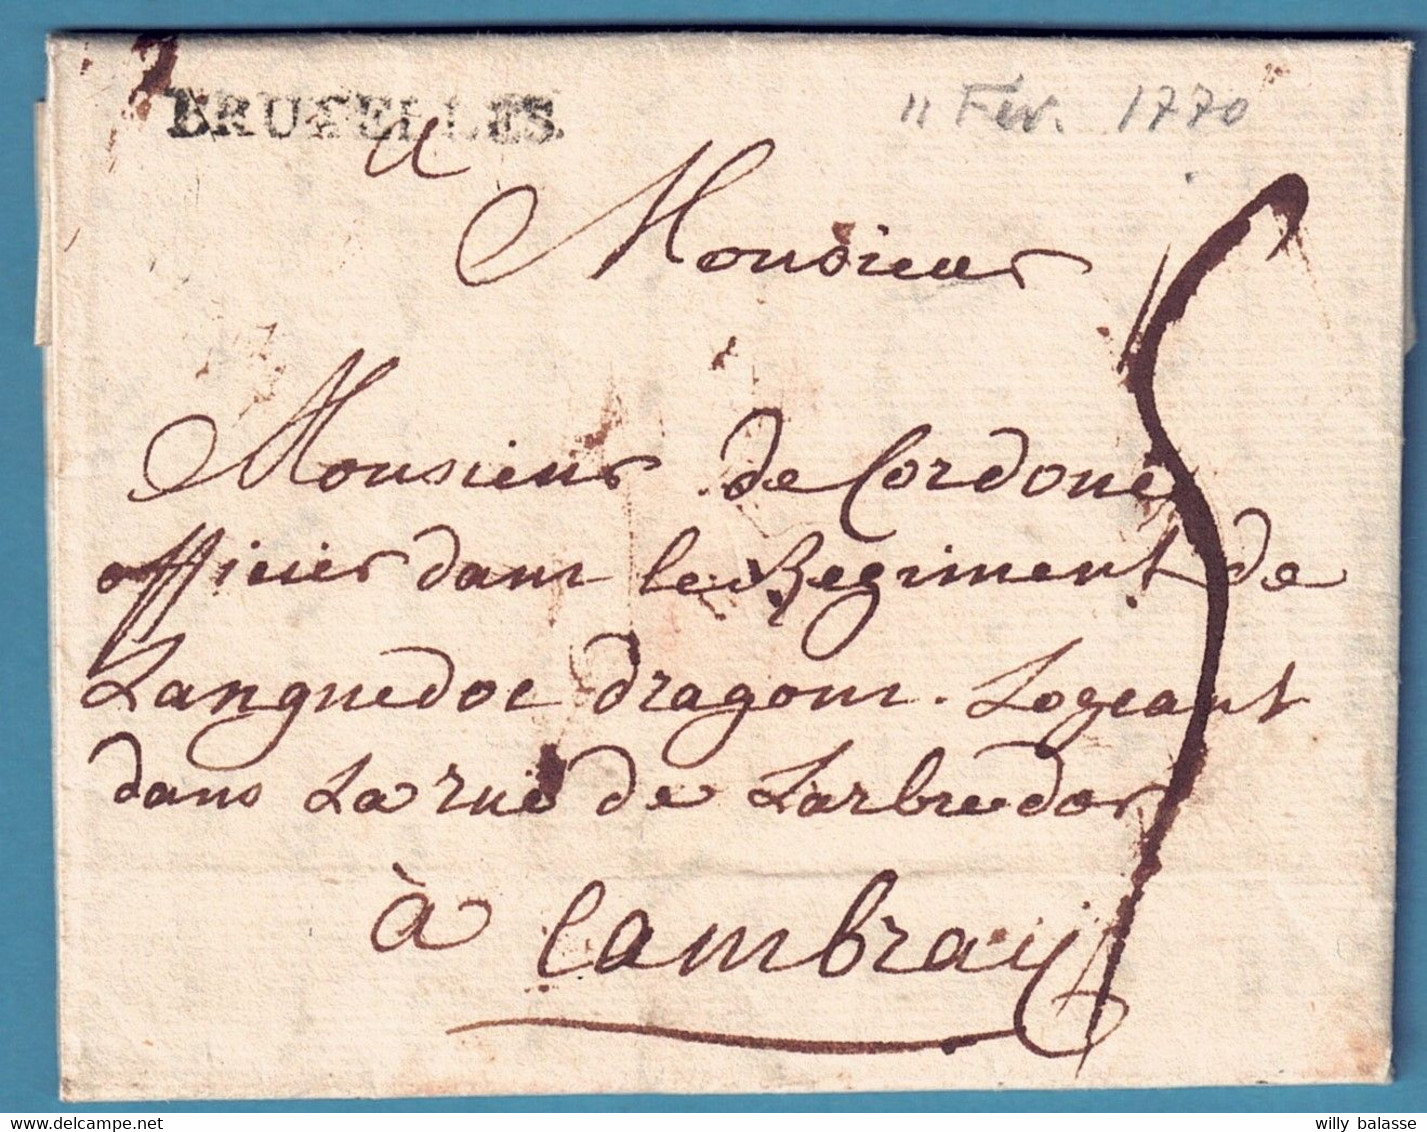 BRUXELLES.
11 Fev. 1770
Monsieur
Monsieur de Cordoue
officier dans le Regiment de
Languedoc dragons. Logeant
dans La rue de Larbredor
à Cambray
willy balasse